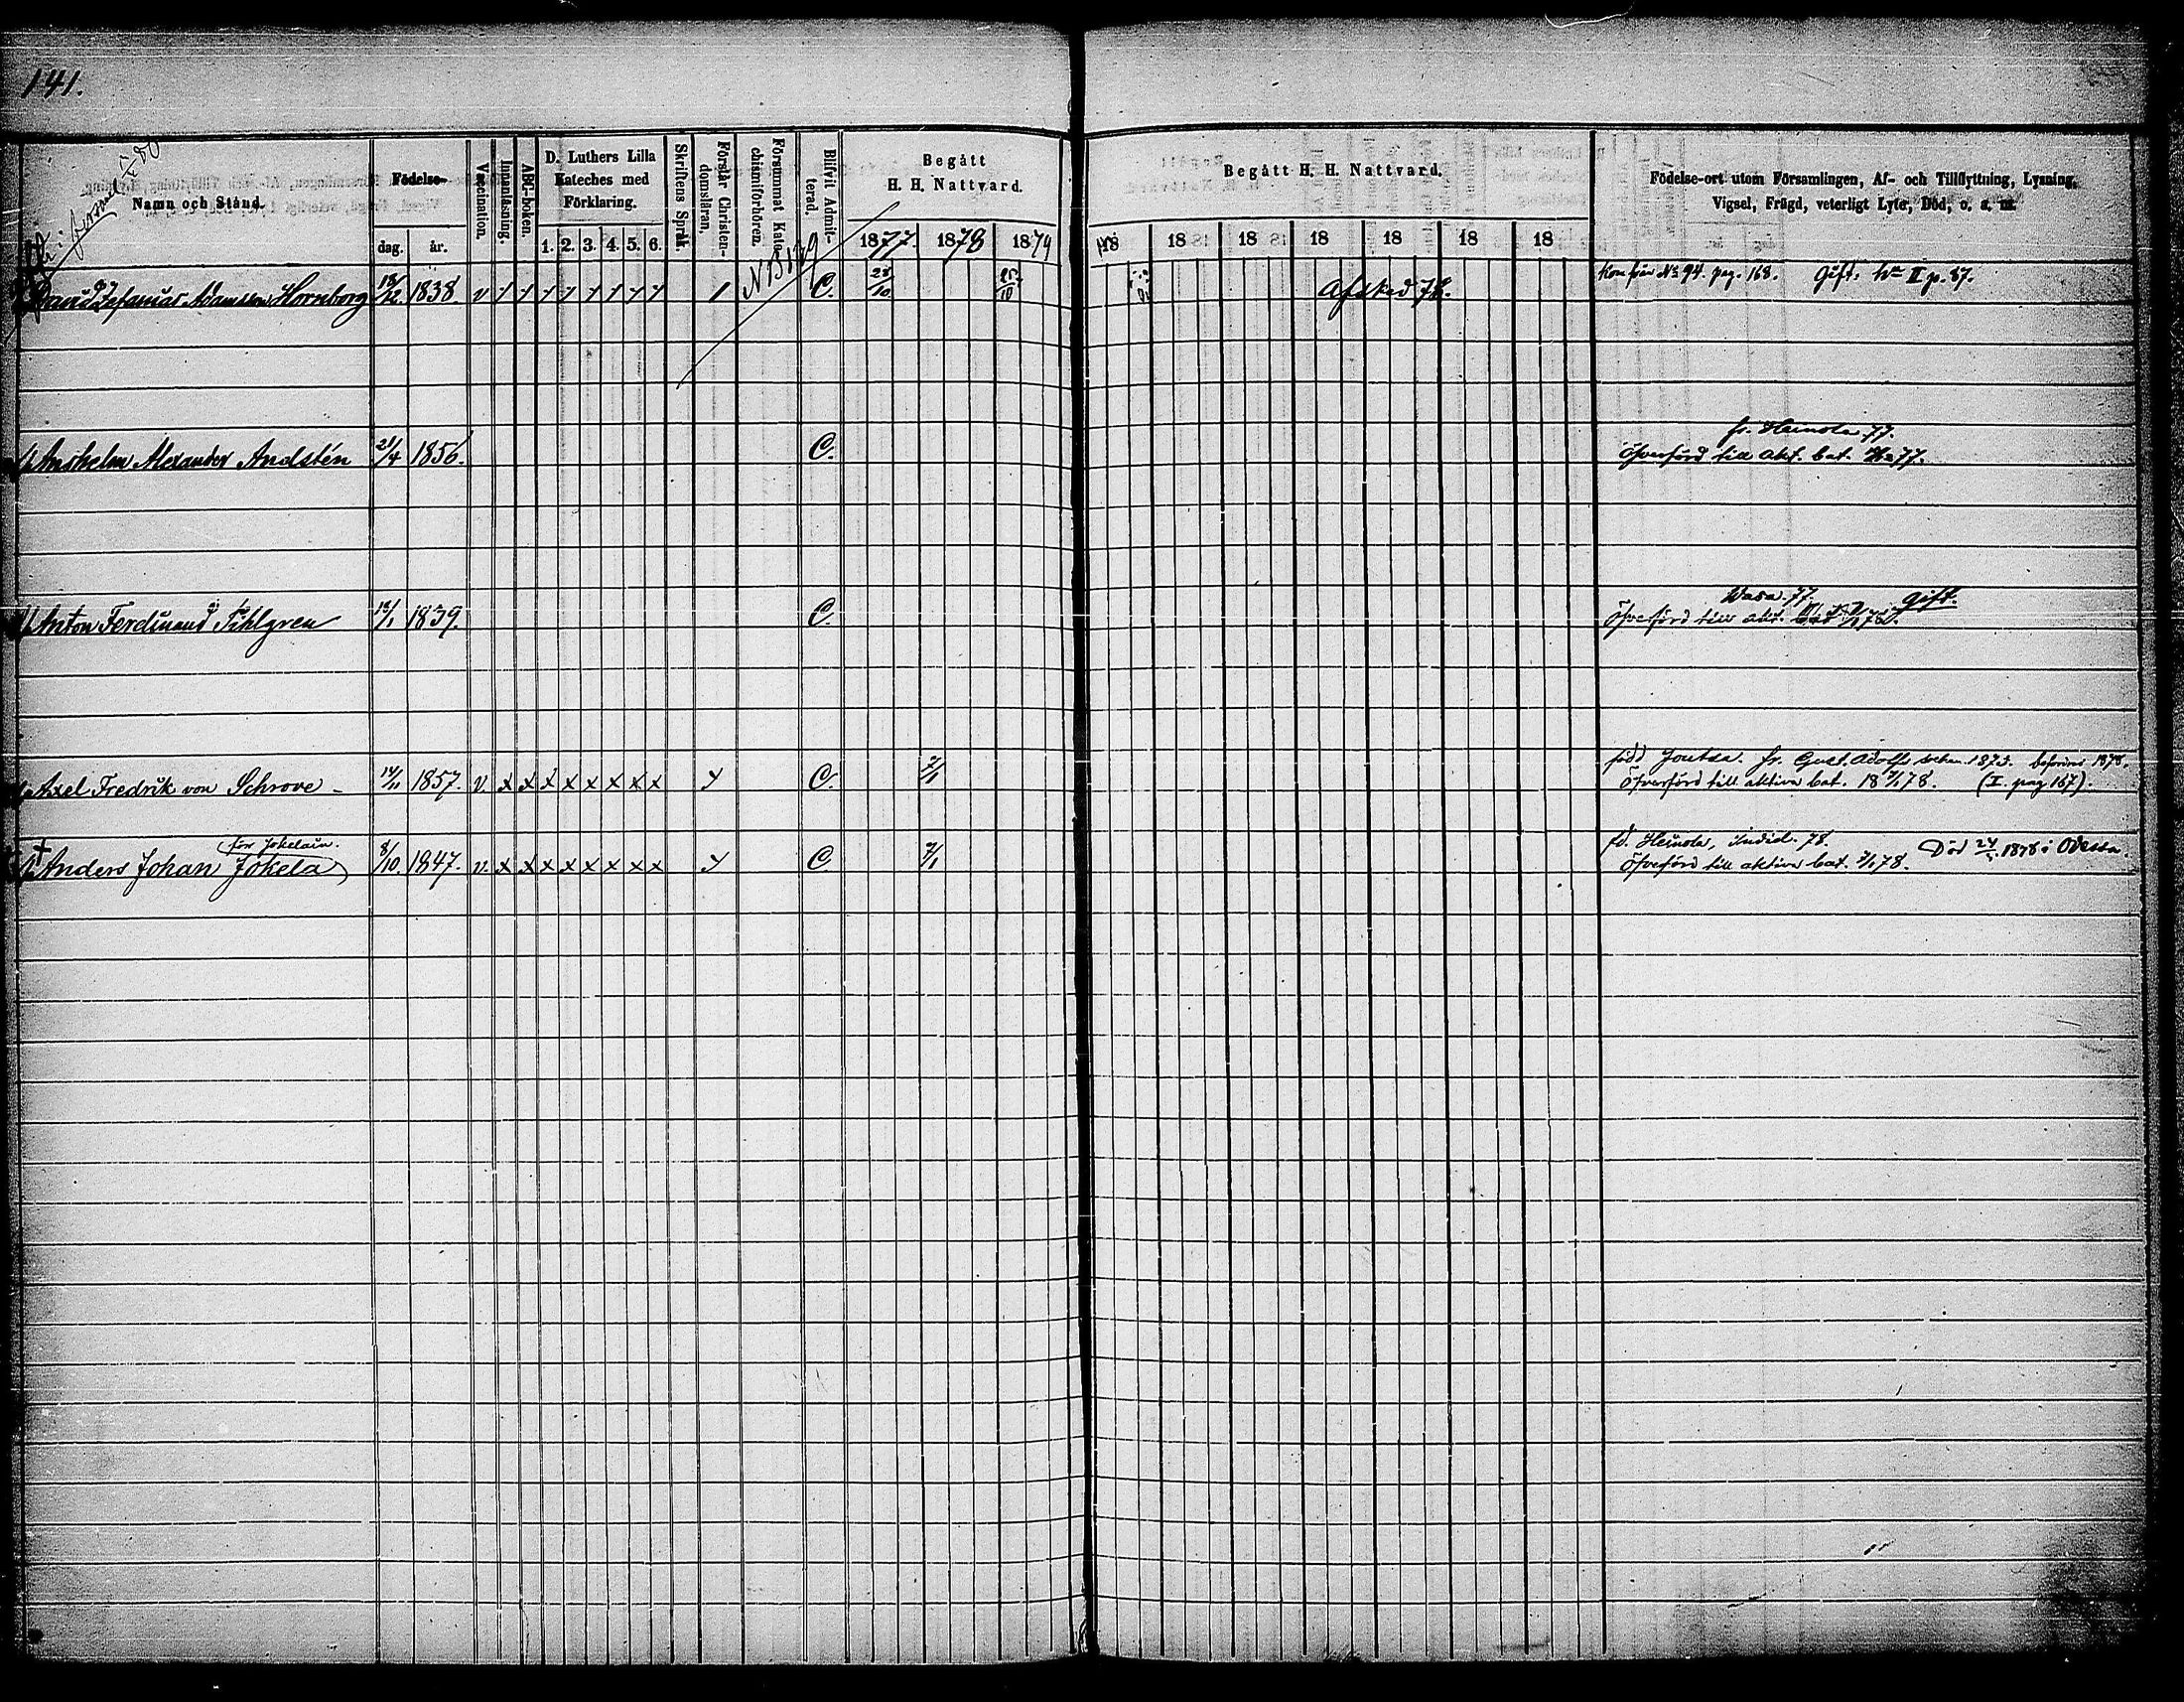 141.
Namn och Stånd.
Födelse-
dag. år.
Vaccination.
Innanläsning.
ABC-boken.
D. Luthers Lilla
Kateches med
Förklaring.
1. 2. 3. 4. 5. 6.
Skriftens Språk.
Förstår Christen-
domsläran.
Försummat Kate-
chismiförhören.
Blifvit Admit-
terad.
Begått
H. H. Nattvard.
1877. 1878 1879
Begått H. H. Nattvard.
18 18 18 18 18 18 18
Födelse-ort utom Församlingen, Af- och Tillflyttning, Lysning,
Vigsel, Frägd, veterligt Lyte, Död, o. s. m.
Adamsson Hornborg 13/12 1838 v C. 23/10 25/10 Afsked 78.
N° 94. pag. 168. Gift. II p. 87.
Anshelm Alexander Andstén 21/4 1856. C.
fr. Heinola 77.
Öfverförd till akt. bat. 77.
Anton Ferdinand Pihlgren 13/1 1839. C.
Wasa. 77. Gift.
Öfverförd till akt. bat. 78.
Axel Fredrik von Schrove 14/11 1857. v. x x x x x x x x C. 7/1
född Joutsa. fr. Gust. Adolfs socken 1873. 1878.
Öfverförd till aktiva bat. 18 7/1 78. (I. pag 167).
(för Jokelain.
Anders Johan Jokela) 8/10. 1847. v. x x x x x x x x C. 7/1
fd. Heinola, 78.
Öfverförd till aktiva bat. 7/1 78. Död 1878 i Odessa.